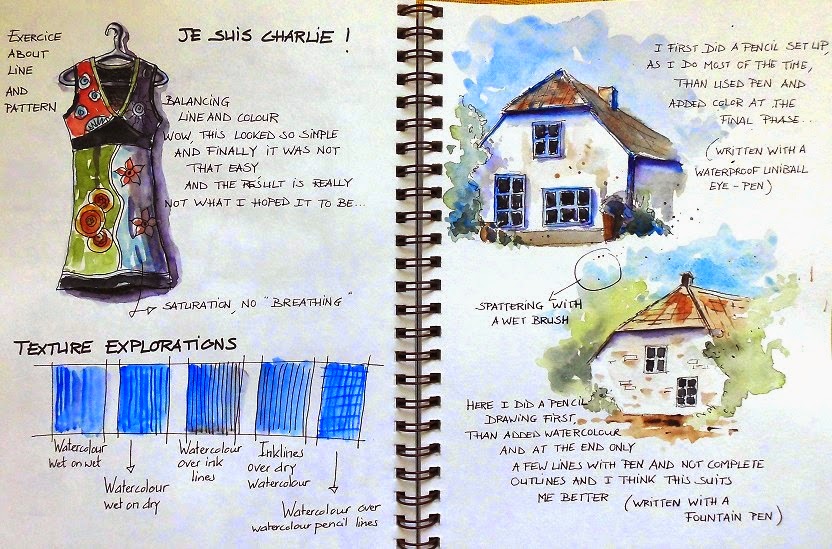 EXERCICE
ABOUT
LINE
AND
PATTERN
JE SUIS CHARLIE !
BALANCING
LINE AND COLOUR
WOW, THIS LOOKED SO SIMPLE
AND FINALLY IT WAS NOT
THAT EASY
AND THE RESULT IS REALLY
NOT WHAT I HOPED IT TO BE...
SATURATION, NO "BREATHING"
TEXTURE EXPLORATIONS
Watercolour
wet on wet
Watercolour
wet on dry
Watercolour
over ink
lines
Inklines
over dry
Watercolour
Watercolour over
watercolour pencil lines
I FIRST DID A PENCIL SET UP,
AS I DO MOST OF THE TIME,
THAN USED PEN AND
ADDED COLOR AT THE
FINAL PHASE...
(WRITTEN WITH A
WATERPROOF UNIBALL
EYE-PEN)
SPATTERING WITH
A WET BRUSH
HERE I DID A PENCIL
DRAWING FIRST,
THAN ADDED WATERCOLOUR
AND AT THE END ONLY
A FEW LINES WITH PEN AND NOT COMPLETE
OUTLINES AND I THINK THIS SUITS
ME BETTER (WRITTEN WITH A
FOUNTAIN PEN)